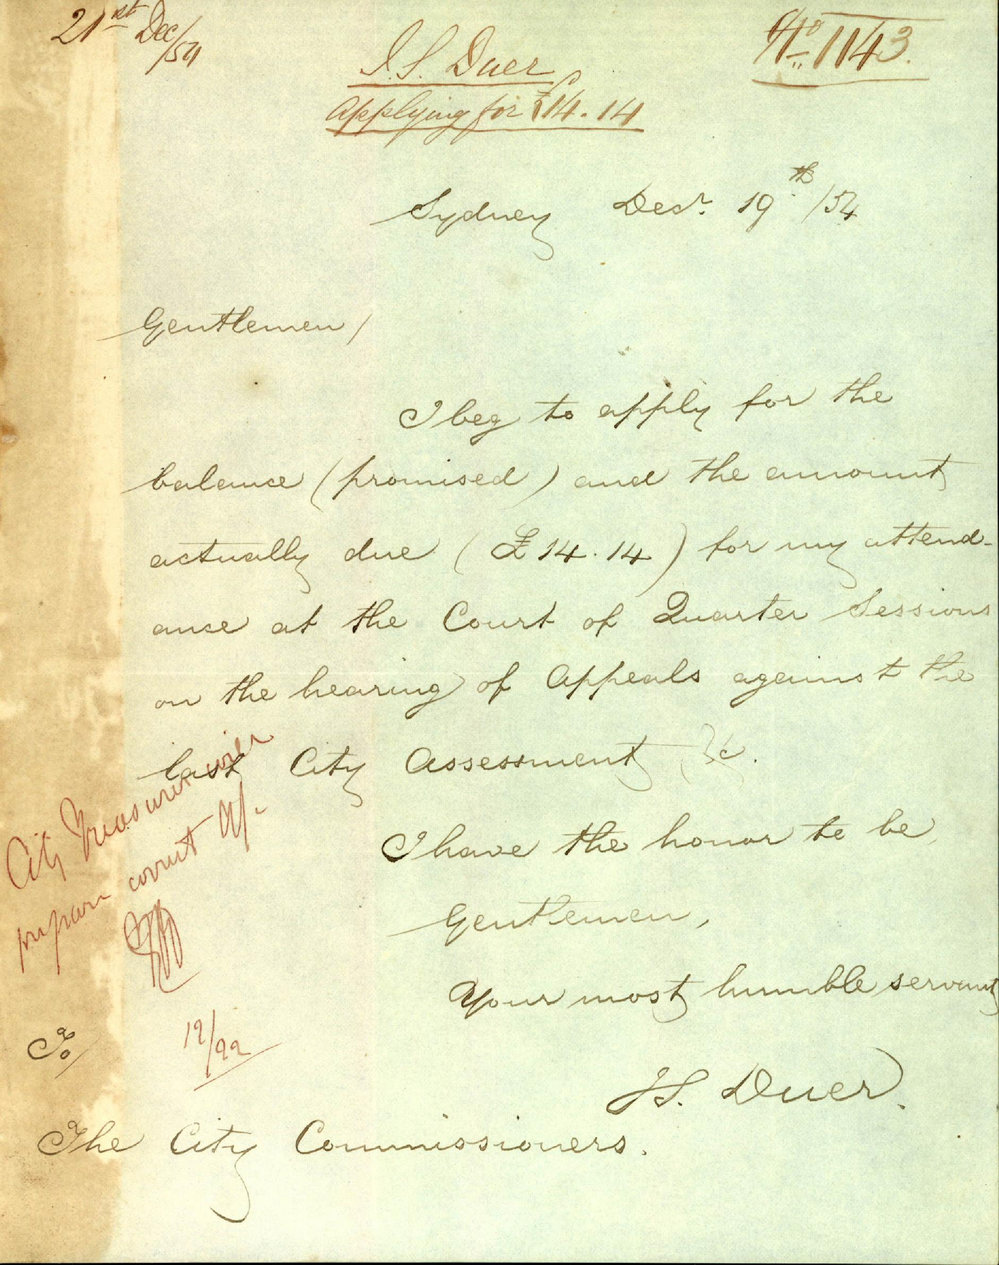 21st Dec/54
J. S. Duer
Applying for £14.14
No 1143.
Sydney Decr. 19th/54
Gentlemen/
I beg to apply for the
balance (promised) and the amount
actually due (£14.14) for my attend-
ance at the Court of Quarter Sessions
on the hearing of Appeals against the
East City Assessment &c.
I have the honor to be
Gentlemen,
Your most humble servant
J S. Duer.
To/
The City Commissioners.
City Treasurer will
prepare
12/22